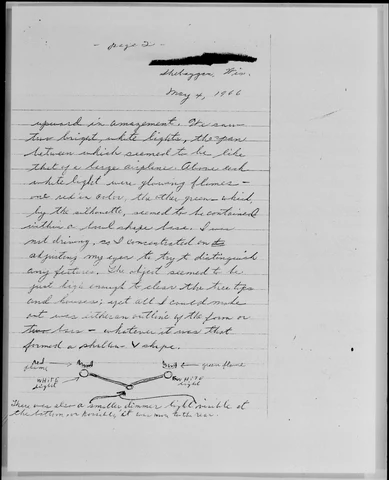 - page 2 -
Sheboygan, Wis.
May 4, 1966
upward in amazement. We saw
two bright, white lights, the span
between which seemed to be like
that of a large airplane. Above each
white light were glowing flames -
one red in color, the other green - which,
by the silhouette, seemed to be contained
within a bowl shape base. I was
not driving, so I concentrated on
adjusting my eyes to try to distinguish
any features. The object seemed to be
just high enough to clear the tree tops
and houses; yet all I could make
out was either an outline of the form or
two bars - whatever it was that
formed a shallow V shape.
Red flame
green flame
WHITE light
WHITE light
There was also a smaller dimmer light visible at
the bottom or possibly it was more to the rear.